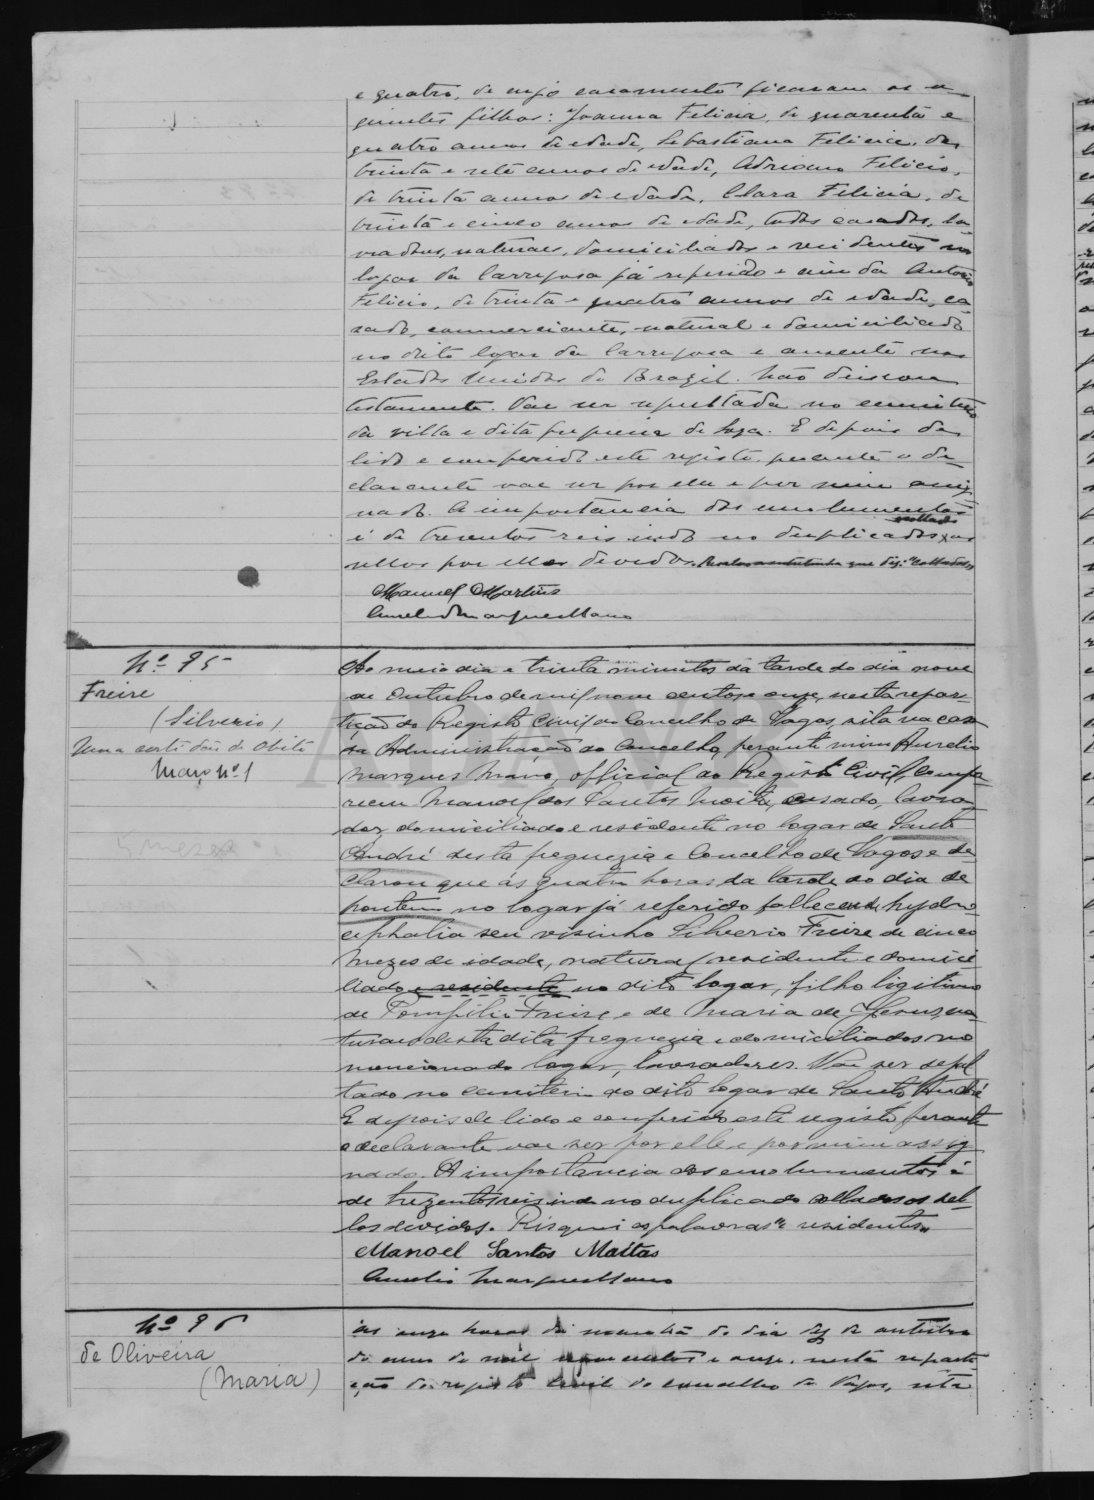 e quatro, de cujo casamento ficaram os se-
guintes filhos: Joanna Felicia, de quarenta e
quatro annos de edade, Sebastiana Felicia, de
trinta e sete annos de edade, Adriano Felicio,
de trinta annos de edade, Clara Felicia, de
trinta e cinco annos de edade, todos casados, la-
vradores, naturaes, domiciliados e residentes no
logar da Carregosa já referido e ainda Antonio
Felicio, de trinta e quatro annos de edade, ca-
sado, commerciante, natural e domiciliado
no dito logar da Carregosa e ausente nos
Estados Unidos do Brazil. Não deixou
testamento. Vae ser sepultada no cemiterio
da villa e dita freguezia de Soza. E depois de
lido e conferido este registo perante o de-
clarante vae ser por elle e por mim assig-
nado. A importancia dos emolumentos
collados
é de trezentos reis indo no duplicado os
sellos por elles devidos. que diz: "collados"
Manuel Martins
Aurelio Marques Mano
Nº 95
Freire
(Silverio)
Maço nº 1
Ao meio dia e trinta minutos da tarde do dia nove
de Outubro de mil nove centos e onze, nesta repar-
tição do Registo Civil do Concelho de Vagos, sita na casa
da Administração do Concelho, perante mim Aurelio
Marques Mano, official do Registo Civil, compa-
receu Manoel dos Santos Moita, casado, lavra-
dor, domiciliado e residente no logar de Santo
André desta freguezia e Concelho de Vagos e de-
clarou que ás quatro horas da tarde do dia de
hontem no logar já referido falleceu de hydro-
cephalia seu visinho Silverio Freire de cinco
mezes de idade, natural, residente e domici-
liado e residente no dito logar, filho ligitimo
de Pompilio Freire e de Maria de Jesus, na-
turaes desta dita freguezia e domiciliados no
mencionado logar, lavradores. Vai ser sepul-
tado no cemiterio do dito logar de Santo André
E depois de lido e conferido este registo perante
o declarante vae ser por elle e por mim assig-
nado. A importancia dos emolumentos é
de trezentos reis indo no duplicado collados os sel-
los devidos. Risquei as palavras "e residente"
Manoel Santos Maitas
Aurelio Marques Mano
Nº 96
de Oliveira
(Maria)
ás onze horas da manhã do dia dez de outubro
do anno de mil novecentos e onze, nesta reparti-
ção do registo civil do concelho de Vagos, sita
ADAVR